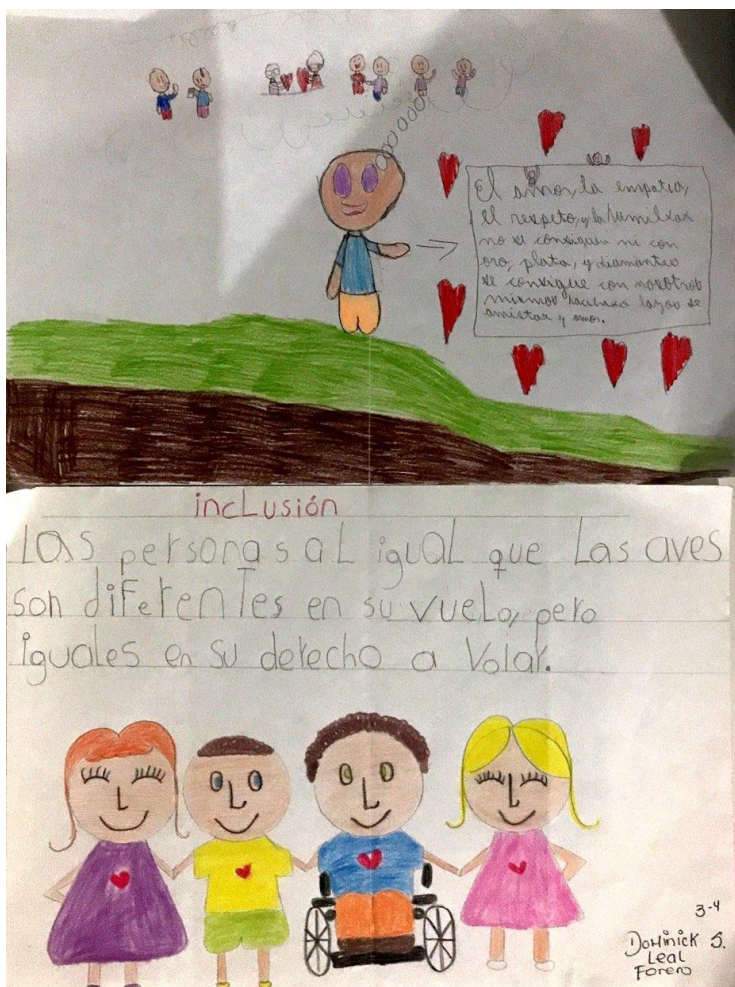 El amor, la empatia,
el respeto, y la humildad
no se consiguen ni con
oro, plata, y diamantes
se consigue con nosotros
mismos haciendo lazos de
amistad y amor.
inclusión
Las personas al igual que las aves
son diferentes en su vuelo, pero
iguales en su derecho a volar.
3-4
Dominick S.
Leal
Forero